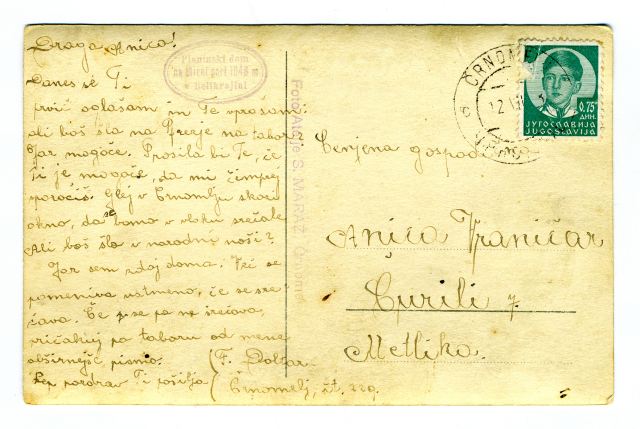 Draga Anica!
Danes se Ti
prvič oglašam in Te vprašam
ali boš šla na Preeje na tabor
Jaz mogoče. Prosila bi Te, če
Ti je mogoče, da mi čimprej
poročiš. Glej v Črnomlju skozi
okno, da se bomo v vlaku srečale
Ali boš šla v narodni noši?
Jaz sem zdaj doma. Več se
pomeniva ustmeno, če se sre-
čava. Če pa se pa ne srečava,
pričakuj po taboru od mene
obširnejše pismo.
Lep pozdrav Ti pošilja
F. Doltar
Črnomelj, št. 229.
Planinski dom
na Mirni gori 1048 m
v Belikrajini
Foto Atelje S.
ČRNOMELJ
12
0,75
ДИН.
ЈУГОСЛАВИЈА
JUGOSLAVIJA
Cenjena gospodična
Anica Vraničar
Čurili 7.
Metlika.